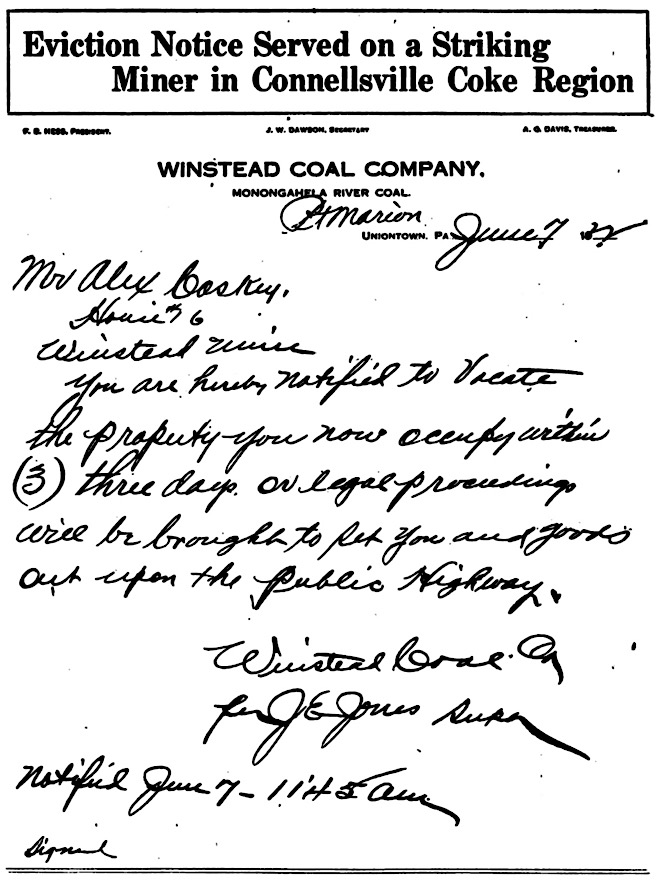 Eviction Notice Served on a Striking
Miner in Connellsville Coke Region
F. B. HESS, PRESIDENT. J. W. DAWSON, SECRETARY A. G. DAVIS, TREASURER.
WINSTEAD COAL COMPANY.
MONONGAHELA RIVER COAL.
Pt Marion
UNIONTOWN, PA. June 7 1922
Mr Alex Coskey.
House #6
Winstead mine
You are hereby notified to Vacate
the property you now occupy within
(3) three days. or legal proceedings
will be brought to set you and goods
out upon the Public Highway.
Winstead Coal. Co
per J E Jones Supr
Notified June 7 - 11 45 am
Signed